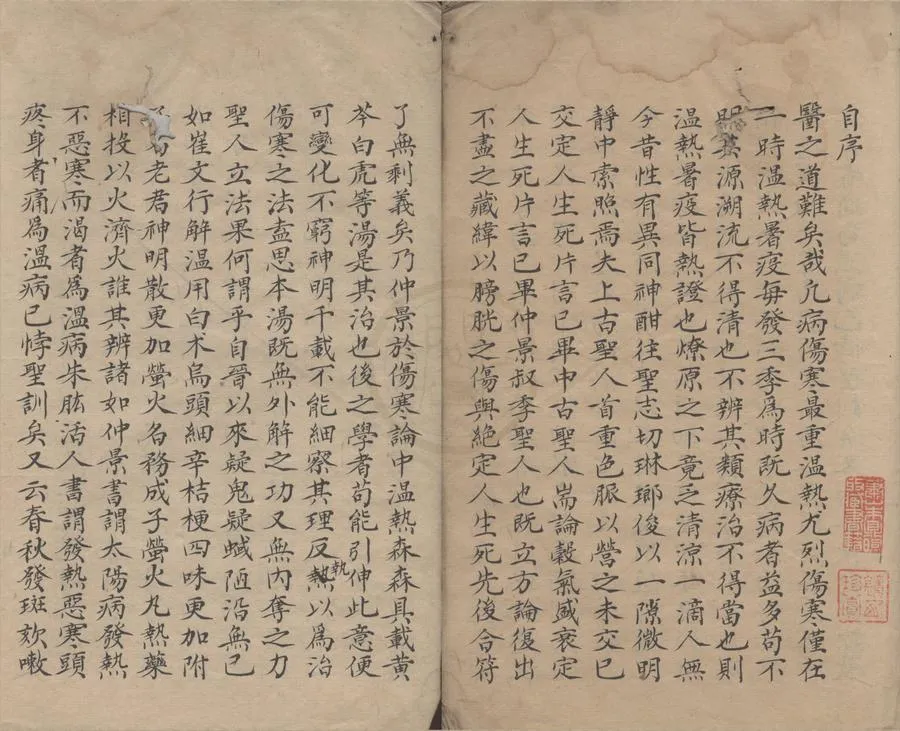 自序
醫之道難矣哉凡病傷寒最重溫熱尤烈傷寒僅在
一時溫熱暑疫每發三季爲時既久病者益多苟不
源溯流不得清也不辨其類療治不得當也則
溫熱暑疫皆熱證也燎原之下竟之清涼一滴人無
今昔性有異同神酣往聖志切琳瑯俊以一隙微明
靜中索照焉夫上古聖人首重色脈以營之未交已
交定人生死片言已畢中古聖人耑論穀氣盛衰定
人生死片言已畢仲景叔季聖人也既立方論復出
不盡之藏緯以膀胱之傷與絕定人生死先後合符
了無剩義矣乃仲景於傷寒論中溫熱森森具載黃
芩白虎等湯是其治也後之學者苟能引伸此意便
可變化不窮神明千載不能細察其理反熱執以爲治
傷寒之法盍思本湯既無外解之功又無內奪之力
聖人立法果何謂乎自晉以來疑鬼疑蜮陋沿無已
如崔文行解溫用白术烏頭細辛桔梗四味更加附
老君神明散更加螢火名務成子螢火丸熱藥
相投以火濟火誰其辨諸如仲景書謂太陽病發熱
不惡寒而渴者爲溫病朱肱活人書謂發熱惡寒頭
疼身者痛爲溫病已悖聖訓矣又云春秋發斑欬嗽